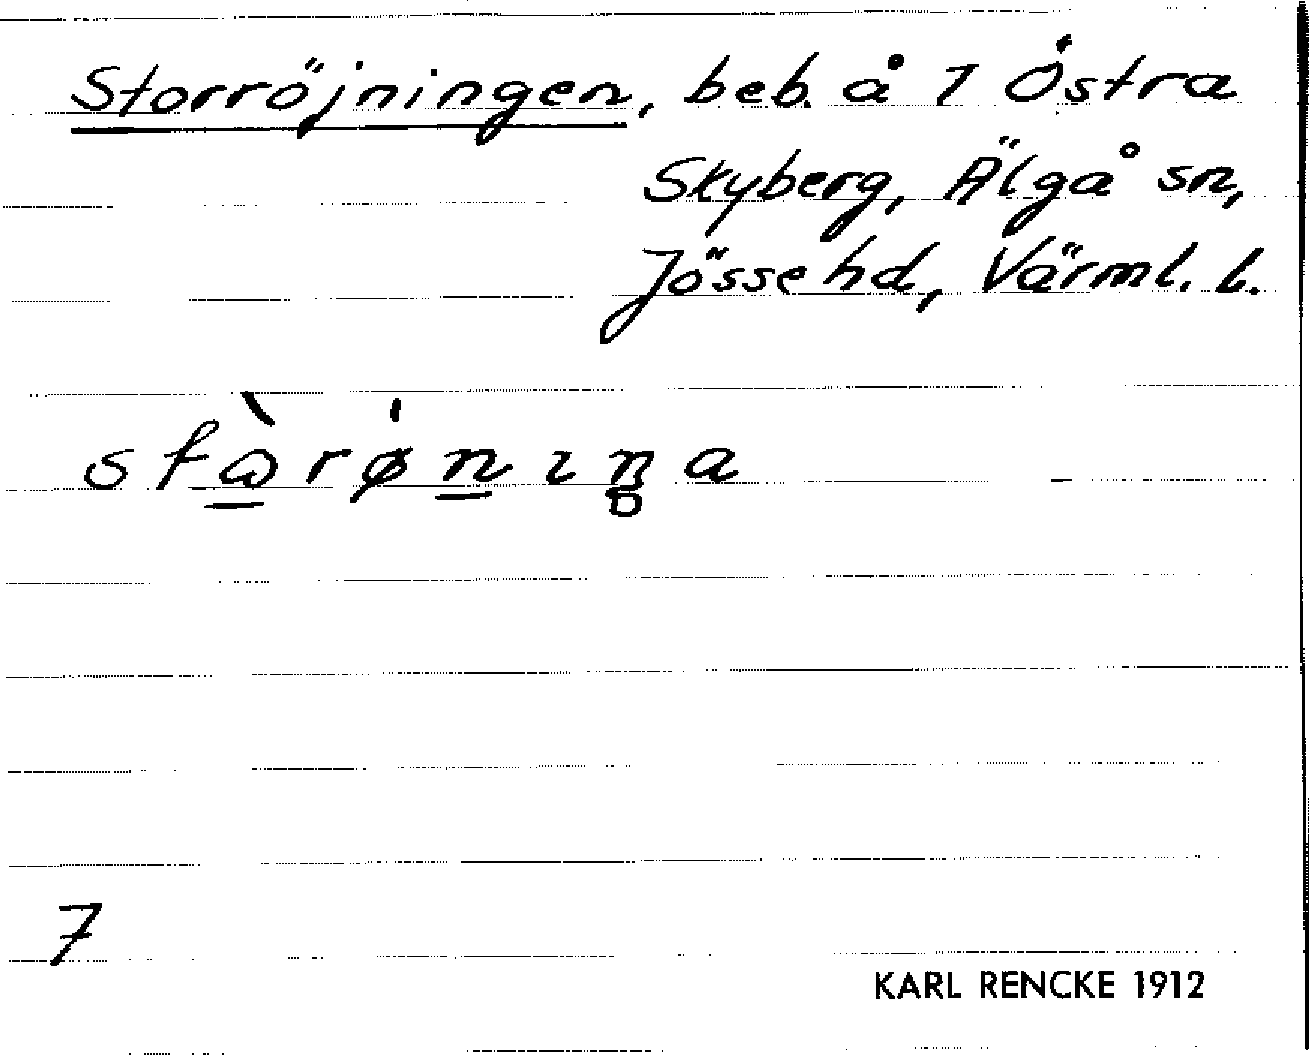 Storröjningen, beb. å 1 Östra
Skyberg, Älgå sn,
Jösse hd, Värml. l.
stὼrø̍nıŋa
7
KARL RENCKE 1912